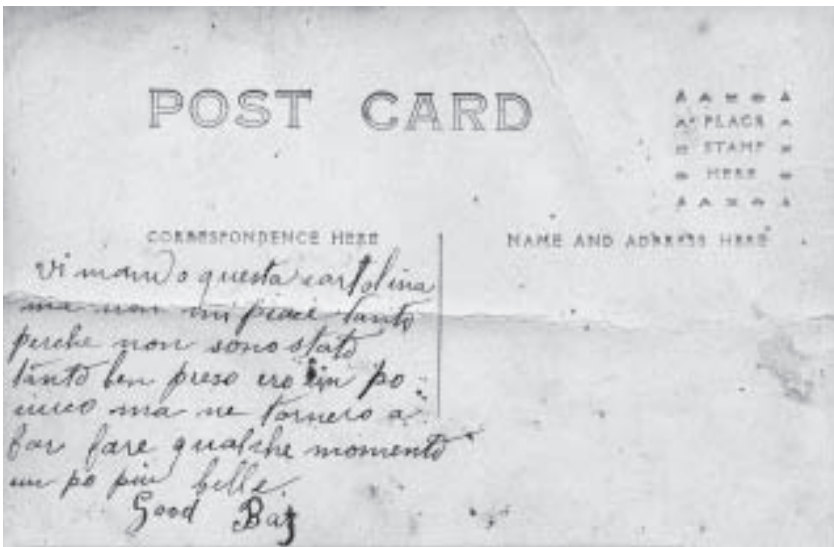 POST CARD
PLACE
STAMP
HERE
CORRESPONDENCE HERE
NAME AND ADDRESS HERE
Vi mando questa cartolina
ma non mi piace tanto
perche non sono stato
tanto ben preso ero un po
ma ne tornero a
far fare qualche momento
un po piu belle.
Good Bay